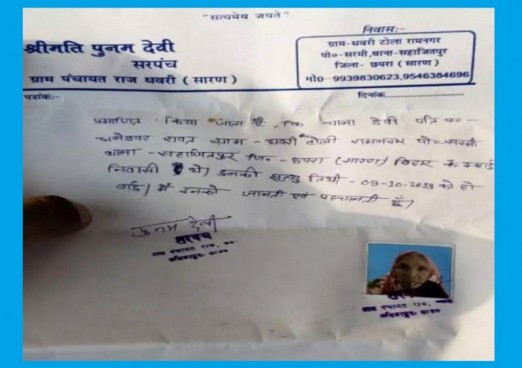 "सत्यमेव जयते"
श्रीमति पुनम देवी
सरपंच
ग्राम पंचायत राज धवरी (सारण)
निवास:-
ग्राम-धवरी टोला रामनगर
पो०-सरमी,थाना-सहाजितपुर
जिला- छपरा (सारण)
मो० 9939830623,9546384696
पत्रांक:-
दिनांक
प्रमाणित किया जाता है कि देवी पति स्व०-
राय ग्राम - धवरी टोला रामनगर पो०-सरमी
थाना - सहाजितपुर जि०- छपरा (सारण) बिहार के स्थाई
निवासी थे। इनकी मृत्यु तिथी - 09-10-2019 को हो
गई। मैं इनको जानती एवं पहचानती हूँ।
पुनम देवी
सरपंच
ग्राम पंचायत राज,